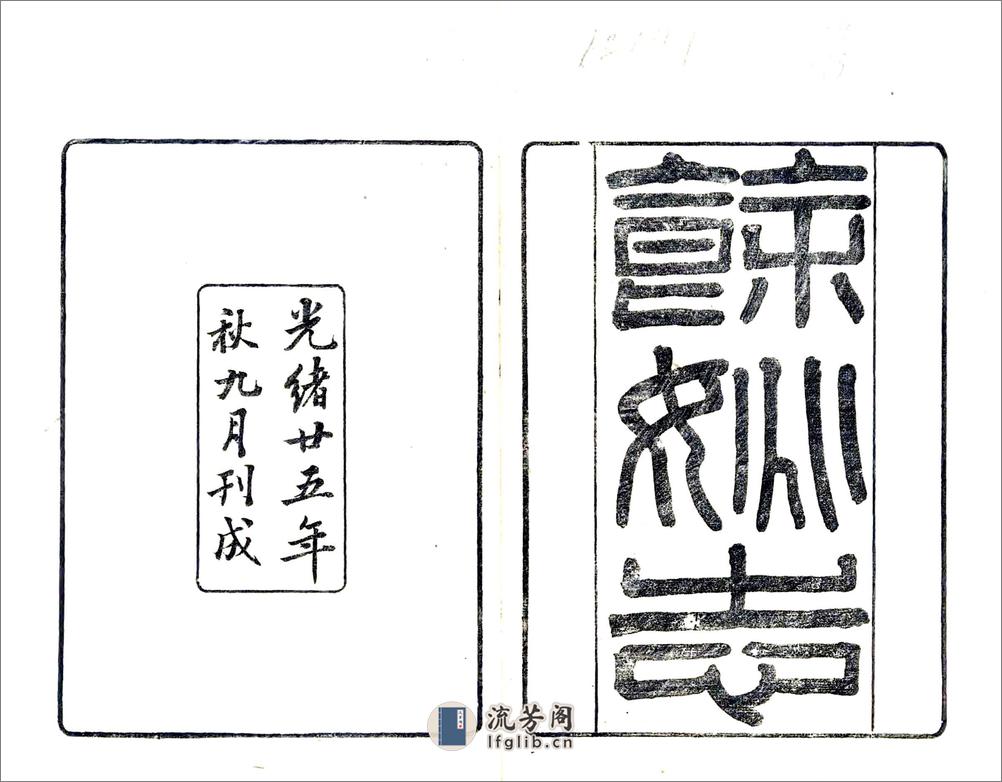 餘姚志
光緒廿五年
秋九月刊成
流芳阁
lfglib.cn